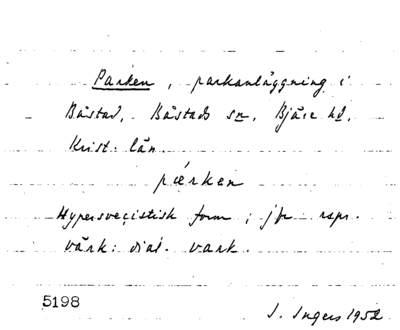 Parken, parkanläggning i
Båstad, Båstads sn, Bjäre hd,
Krist. län.
pærken
Hypersvecistisk form; jfr rspr.
värk: dial. vark.
5198
I. Ingers 1952